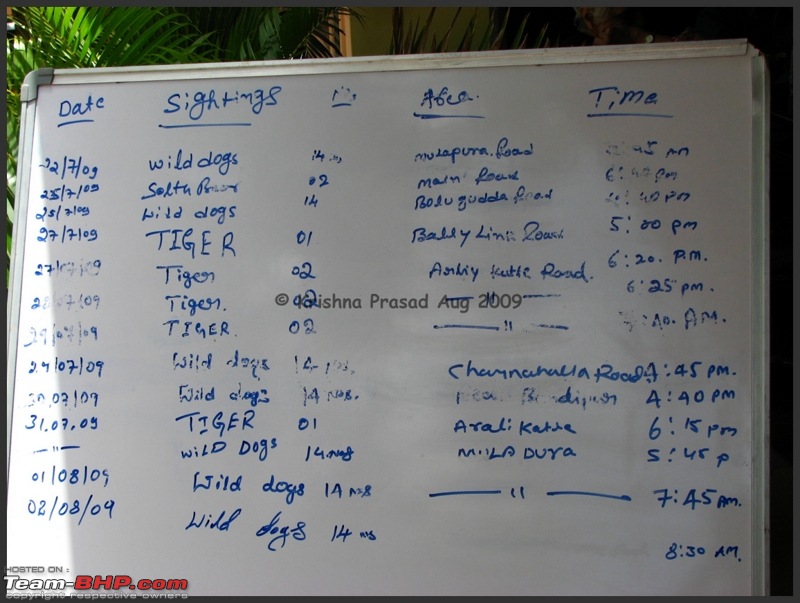 Date Sightings Area Time
22/7/09 wild dogs 14 Mulapura Road
25/7/09 02 main Road 6:
25/7/09 wild dogs 14 Bolugudda Road
27/7/09 TIGER 01 Road 5:00 pm
27/07/09 Tiger 02 Road. 6:20. P.M.
28/07/09 Tiger. 02 —— 11 —— 6:25 P.M.
29/07/09 TIGER. 02 —— 11 —— 7: AM.
29/07/09 Wild dogs 14 Nos. Channahalla Road 4:45 PM.
30/07/09 Wild dogs 14 Nos. Bandipur 4:40 PM
31.07.09 TIGER 01 Arali Katte 6:15 pm
—11— WILD DOGS 14 Nos MULAPURA 5:45 p
01/08/09 Wild dogs 14 Nos —— 11 —— 7:45 AM.
02/08/09 Wild dogs 14 Nos 8:30 AM.
© Krishna Prasad Aug 2009
HOSTED ON :
Team-BHP.com
copyright respective owners